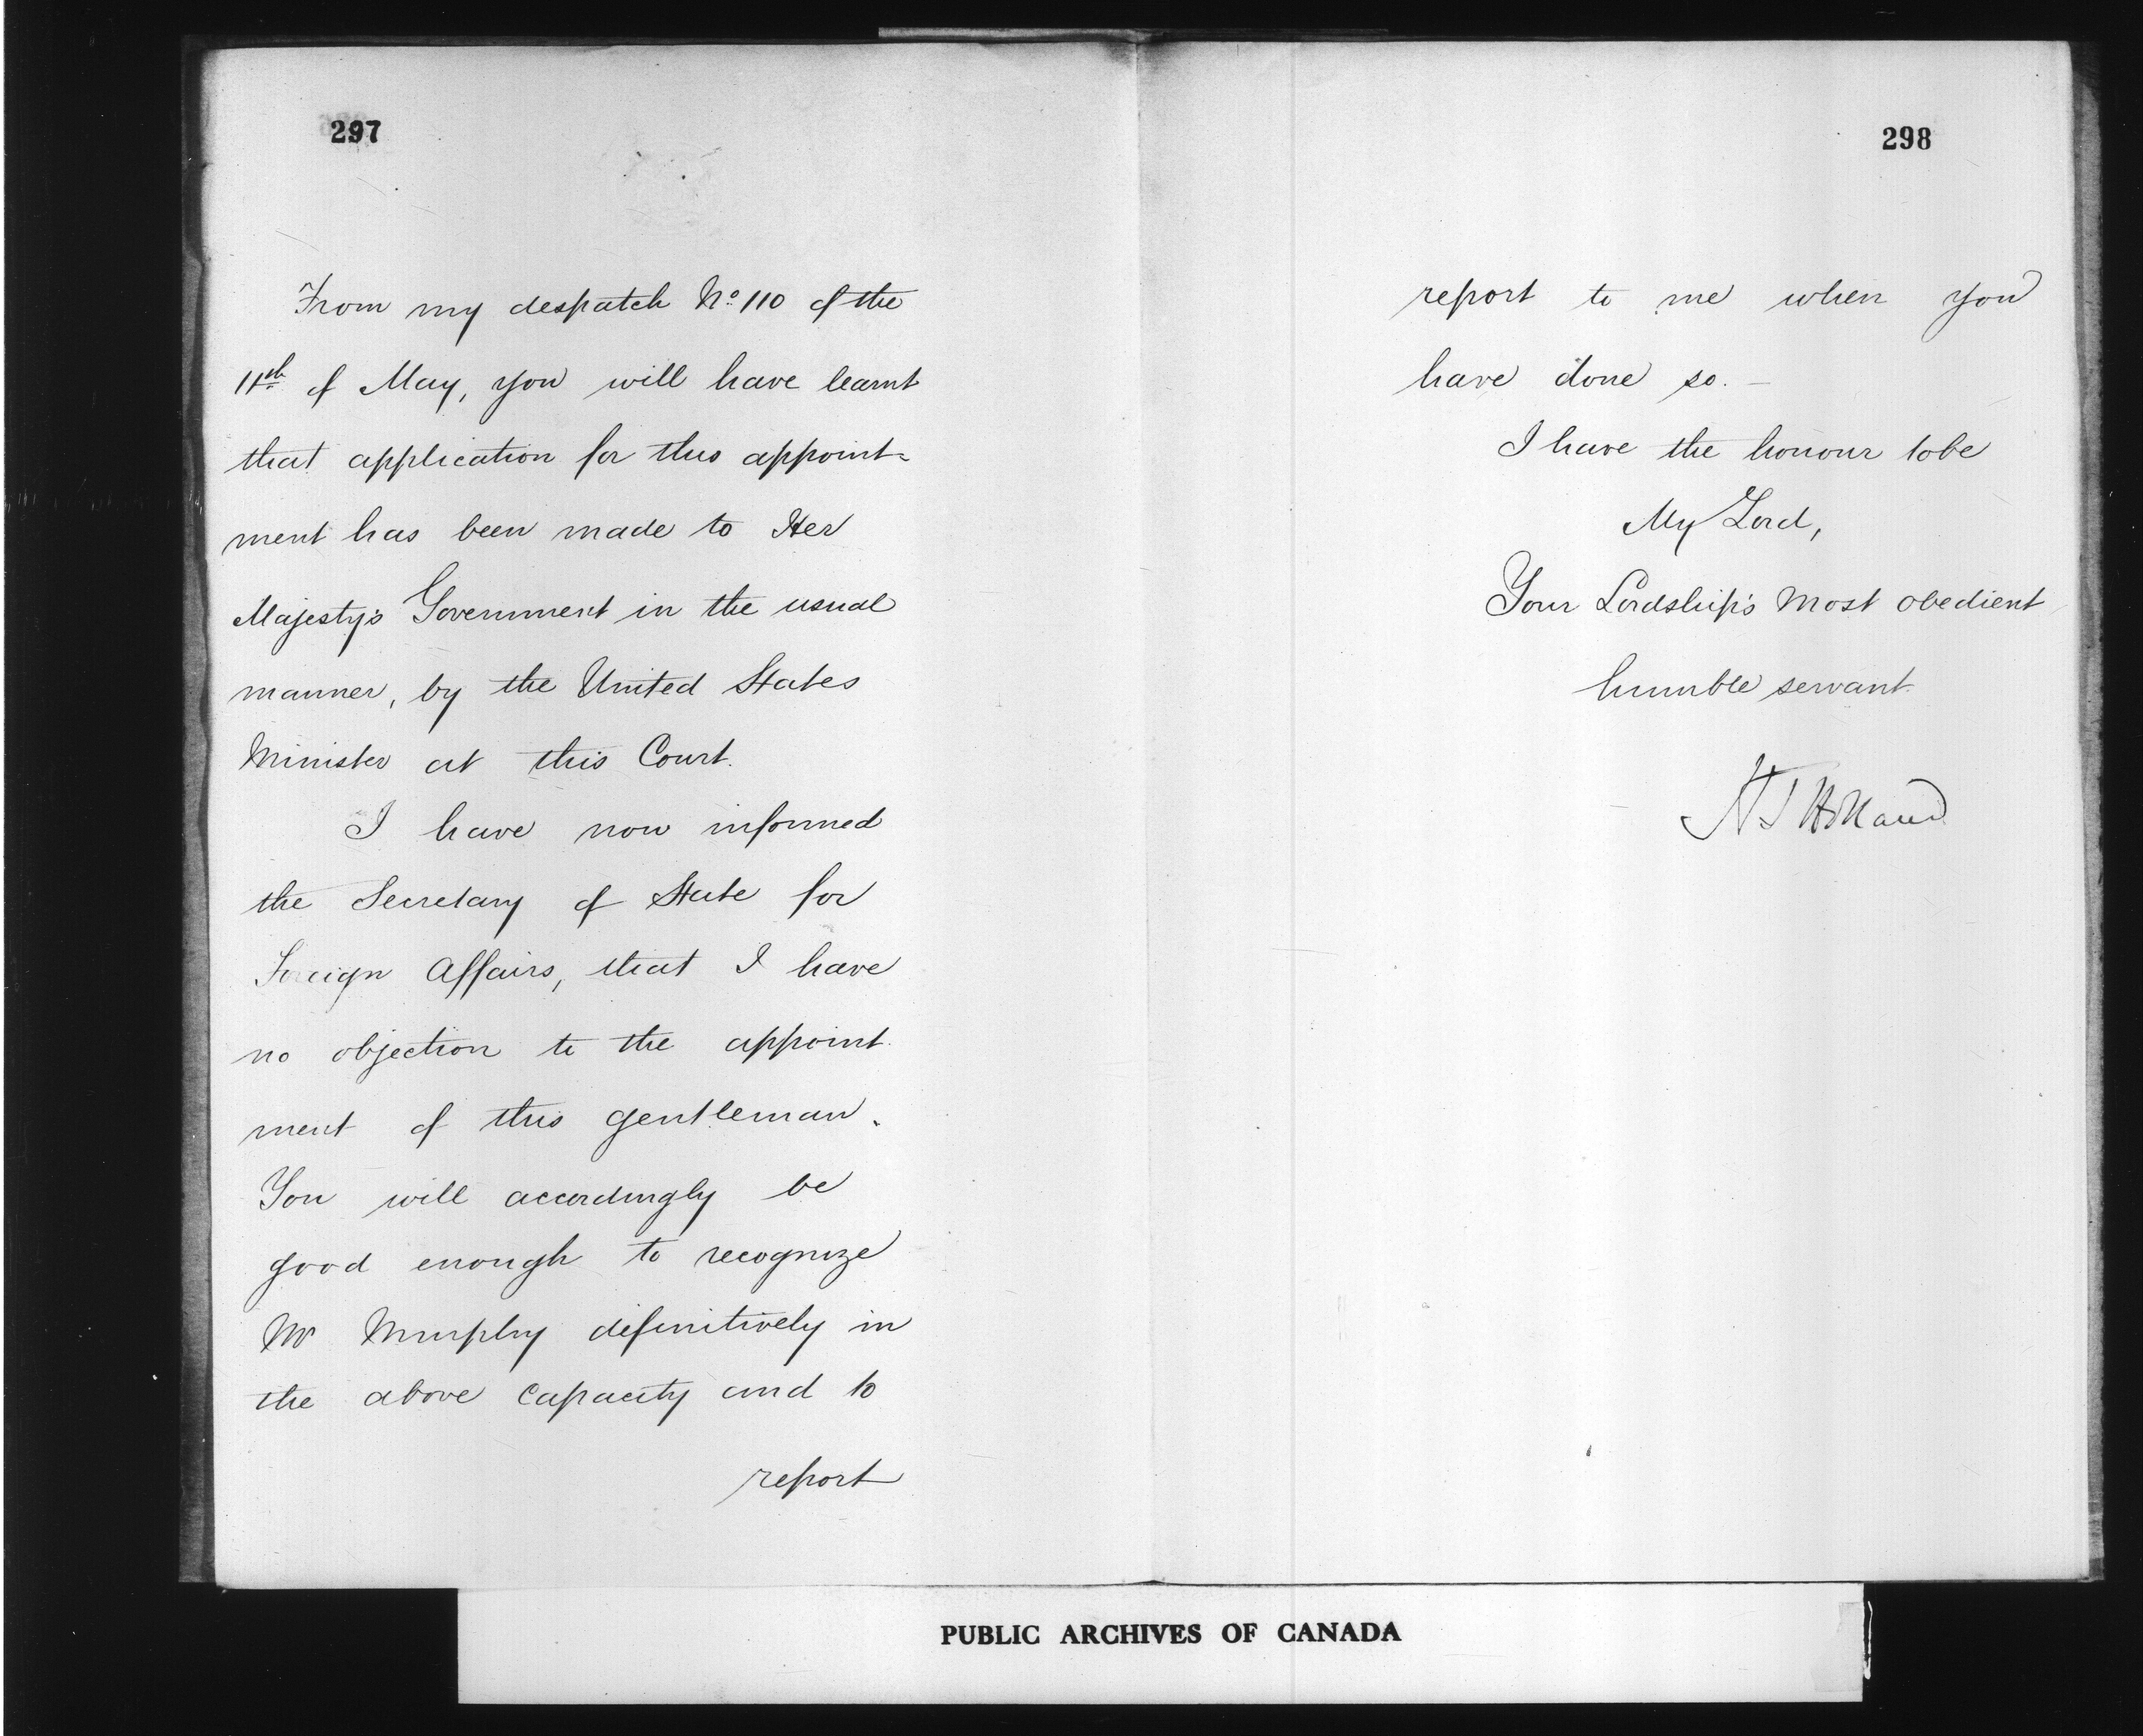 297
From my despatch No. 110 of the
11th of May, you will have learnt
that application for this appoint-
ment has been made to Her
Majesty's Government in the usual
manner, by the United States
Minister at this Court.
I have now informed
the Secretary of State for
Foreign Affairs, that I have
no objection to the appoint-
ment of this gentleman.
You will accordingly be
good enough to recognize
Mr Murphy definitively in
the above capacity and to
report
298
report to me when you
have done so. —
I have the honour to be
My Lord,
Your Lordship's most obedient
humble servant.
H T Holland
PUBLIC ARCHIVES OF CANADA